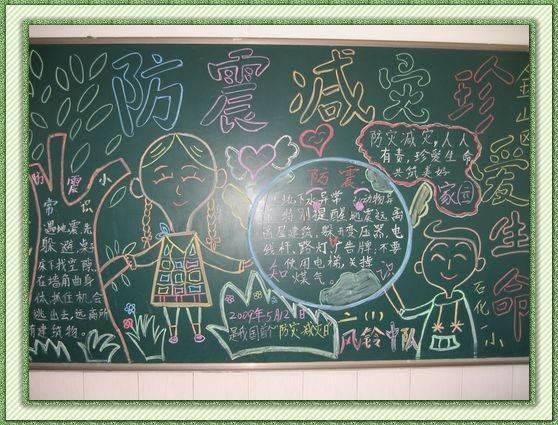 防震减灾 珍爱生命
金山区
石化一小
防震小
常识
遇地震,先
躲避,桌子
床下找空隙,
在墙角曲身
体,抓住机会
逃出去,远离所
有建筑物。
防震
特别提醒地震远离
高层建筑,躲开变压器,电
线杆,路灯广告牌,不要
使用电梯,关掉
煤气。
知识
防灾减灾,人人
有责,珍爱生命
共筑美好
家园
2009年5月12日
是我国首个"防灾减灾日"
二(1)
风铃中队